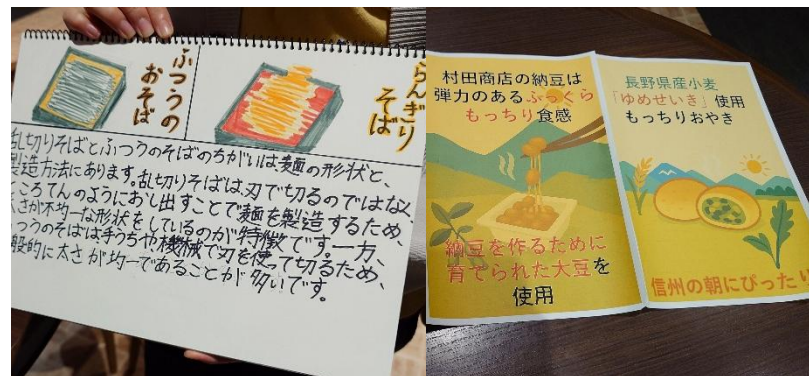 ふつうの
おそば
らんぎり
そば
乱切りそばとふつうのそばのちがいは、麺の形状と、
製造方法にあります。乱切りそばは刃で切るのではなく、
ところてんのようにおし出すことで麺を製造するため、
太さが不均一な形状をしているのが特徴です。一方、
ふつうのそばは手うちや機械で刃を使って切るため、
般的に太さが均一であることが多いです。
村田商店の納豆は
弾力のあるふっくら
もっちり食感
納豆を作るために
育てられた大豆を
使用
長野県産小麦
「ゆめせいき」使用
もっちりおやき
信州の朝にぴったい